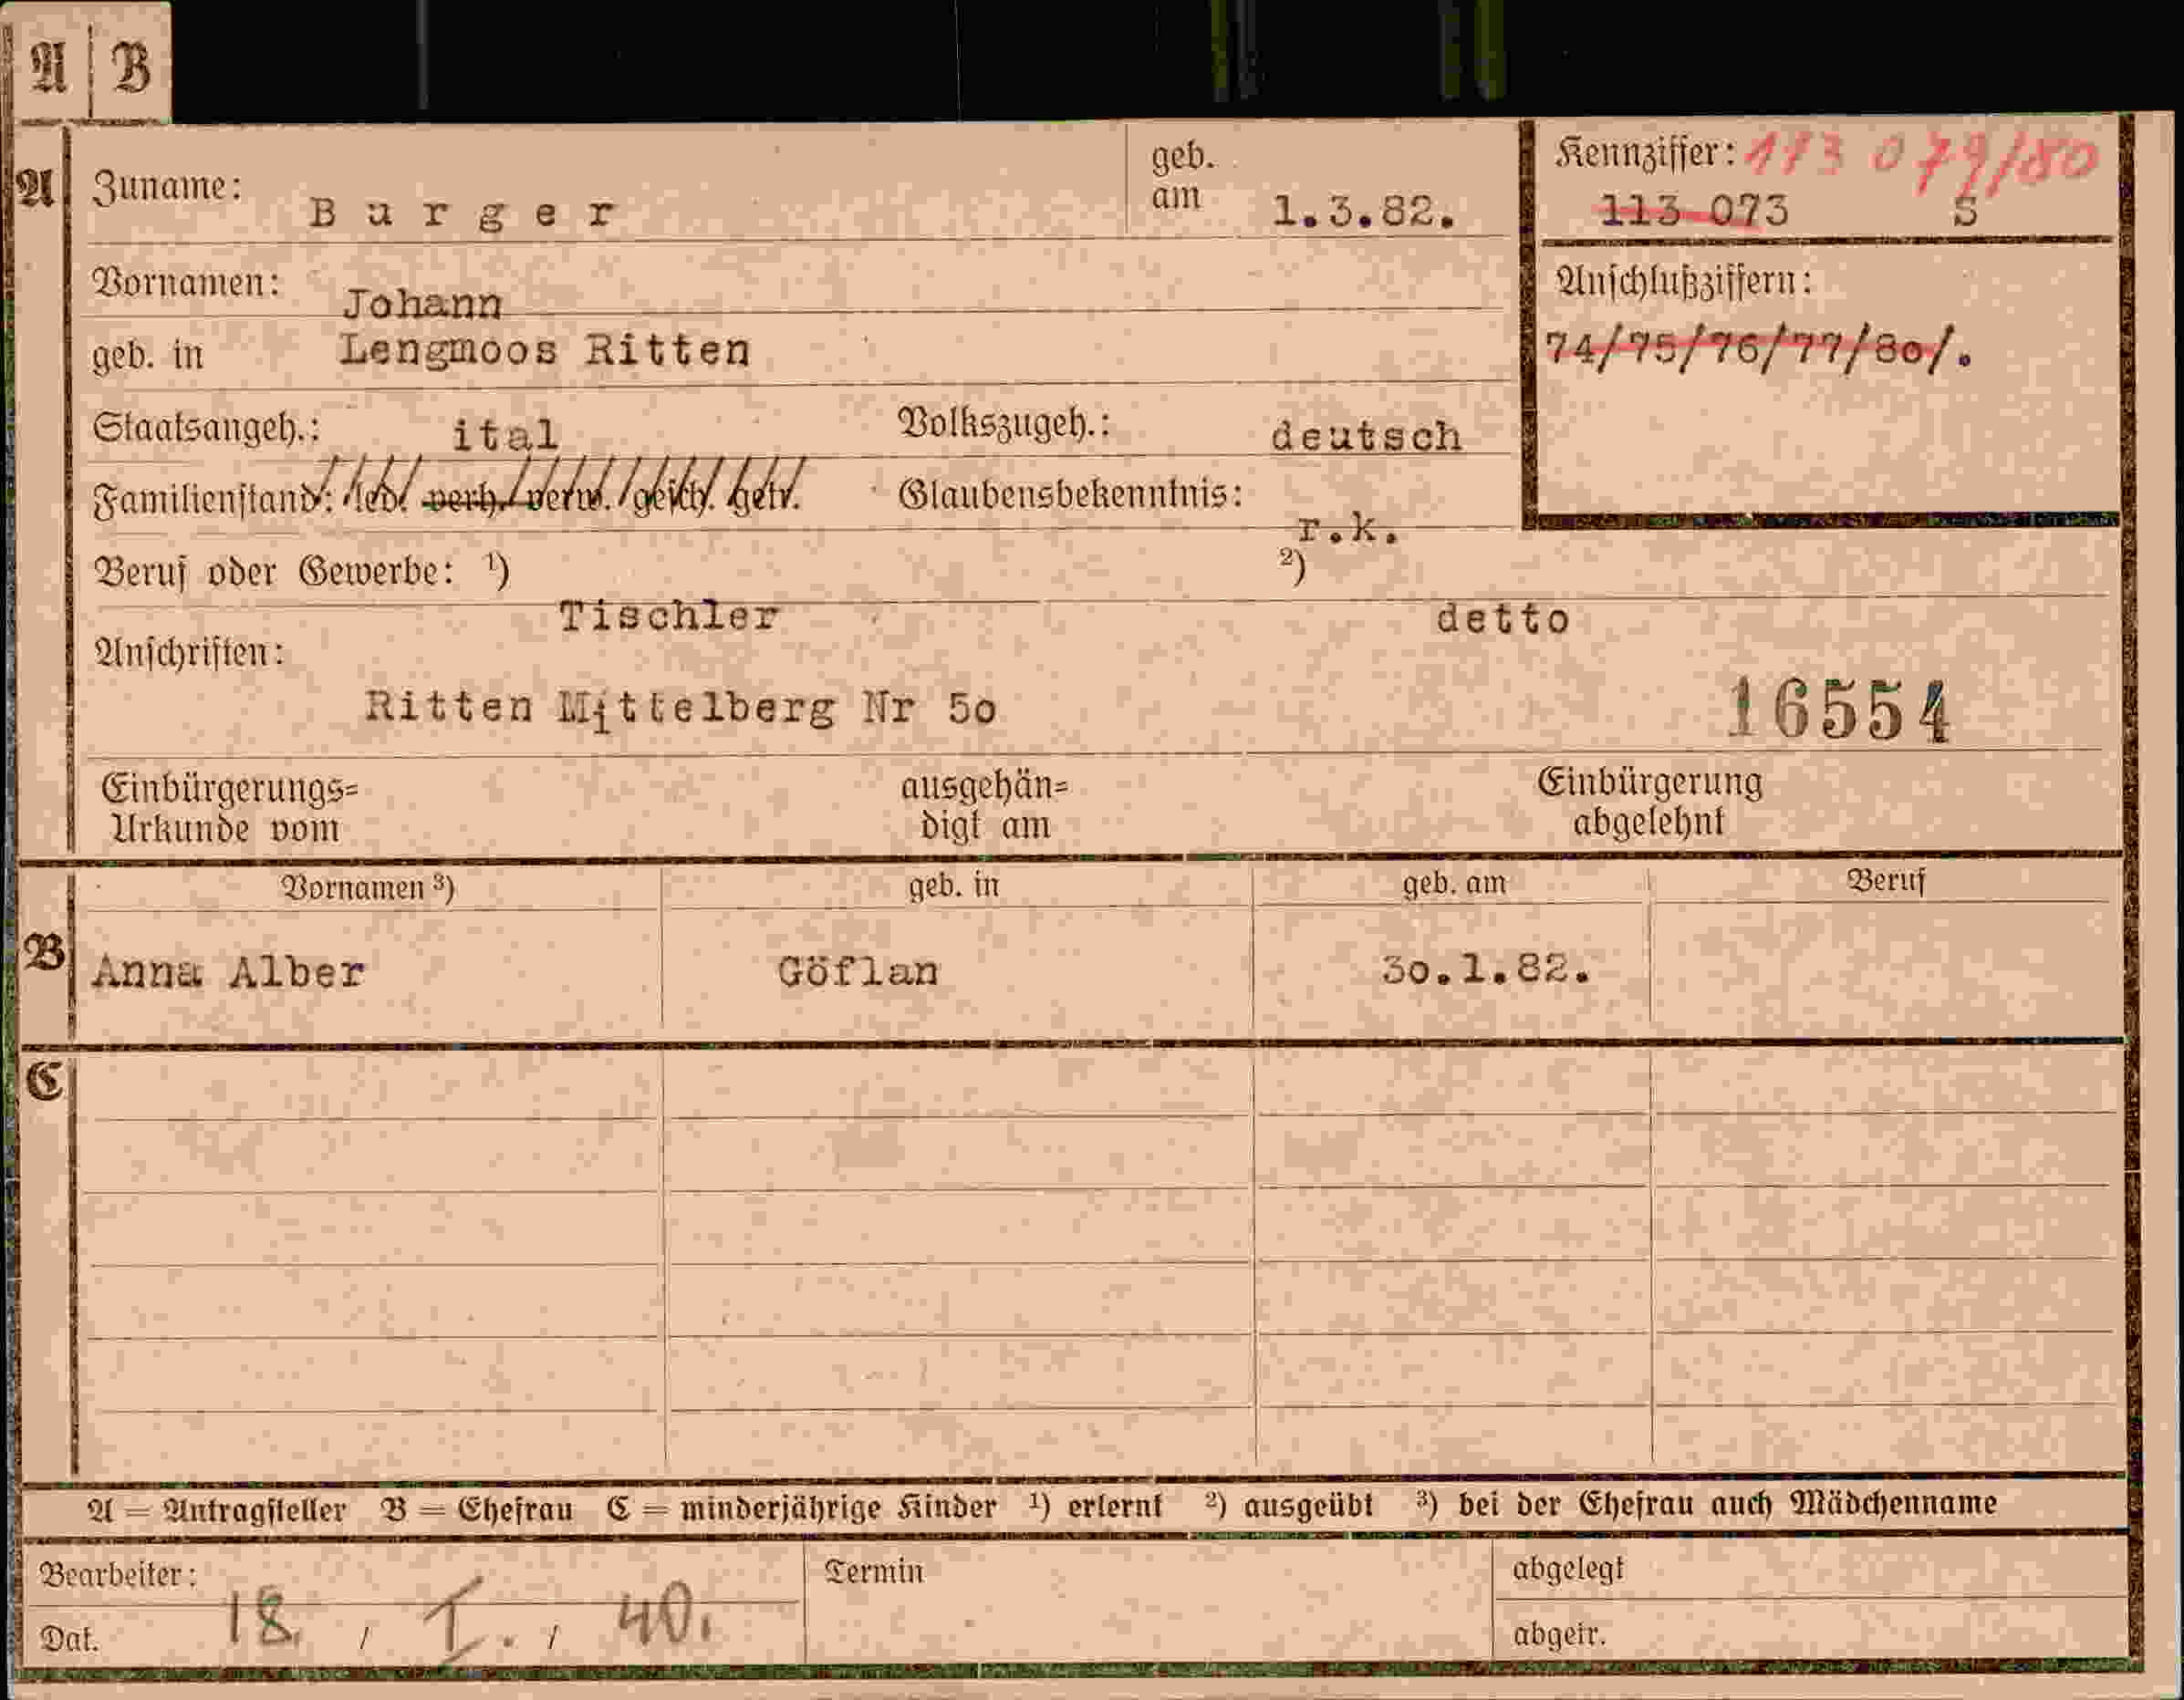 A B
A Zuname: Burger geb. am 1.3.82. Kennziffer: 113 079/80
113 073 S
Vornamen: Johann Anschlußziffern:
geb. in Lengmoos Ritten 74/75/76/77/80/.
Staatsangeh.: ital Volkszugeh.: deutsch
Familienstand: led. verh. verw. gesch. getr. Glaubensbekenntnis: r.k.
Beruf oder Gewerbe: 1) Tischler 2) detto
Anschriften:
Ritten Mittelberg Nr 50 16554
Einbürgerungs= ausgehän= Einbürgerung
Urkunde vom digt am abgelehnt
Vornamen 3) geb. in geb. am Beruf
B Anna Alber Göflan 30.1.82.
C
A = Antragsteller B = Ehefrau C = minderjährige Kinder 1) erlernt 2) ausgeübt 3) bei der Ehefrau auch Mädchenname
Bearbeiter: Termin abgelegt
Dat. 18. / I. / 40. abgetr.